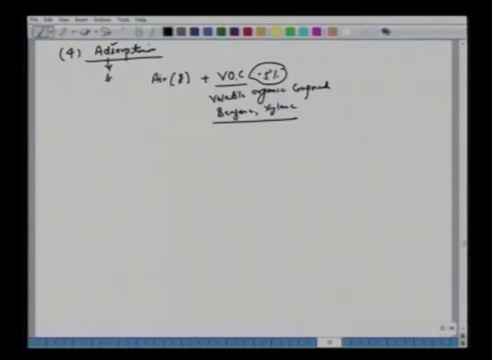 File Edit View Insert Actions Tools Help
(4) Adsorption
Air (g) + V.O.C
Volatile organic Compound
Benzene, Xylene